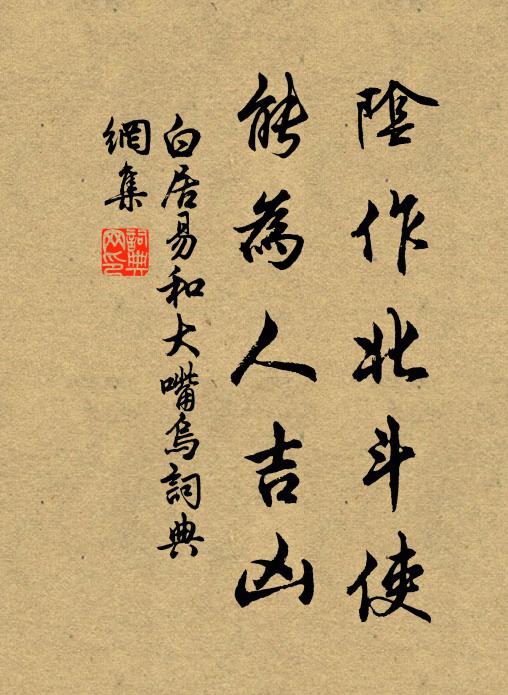 陰作北斗使
能為人吉凶
白居易和大嘴烏詞典
網集
詞典網印